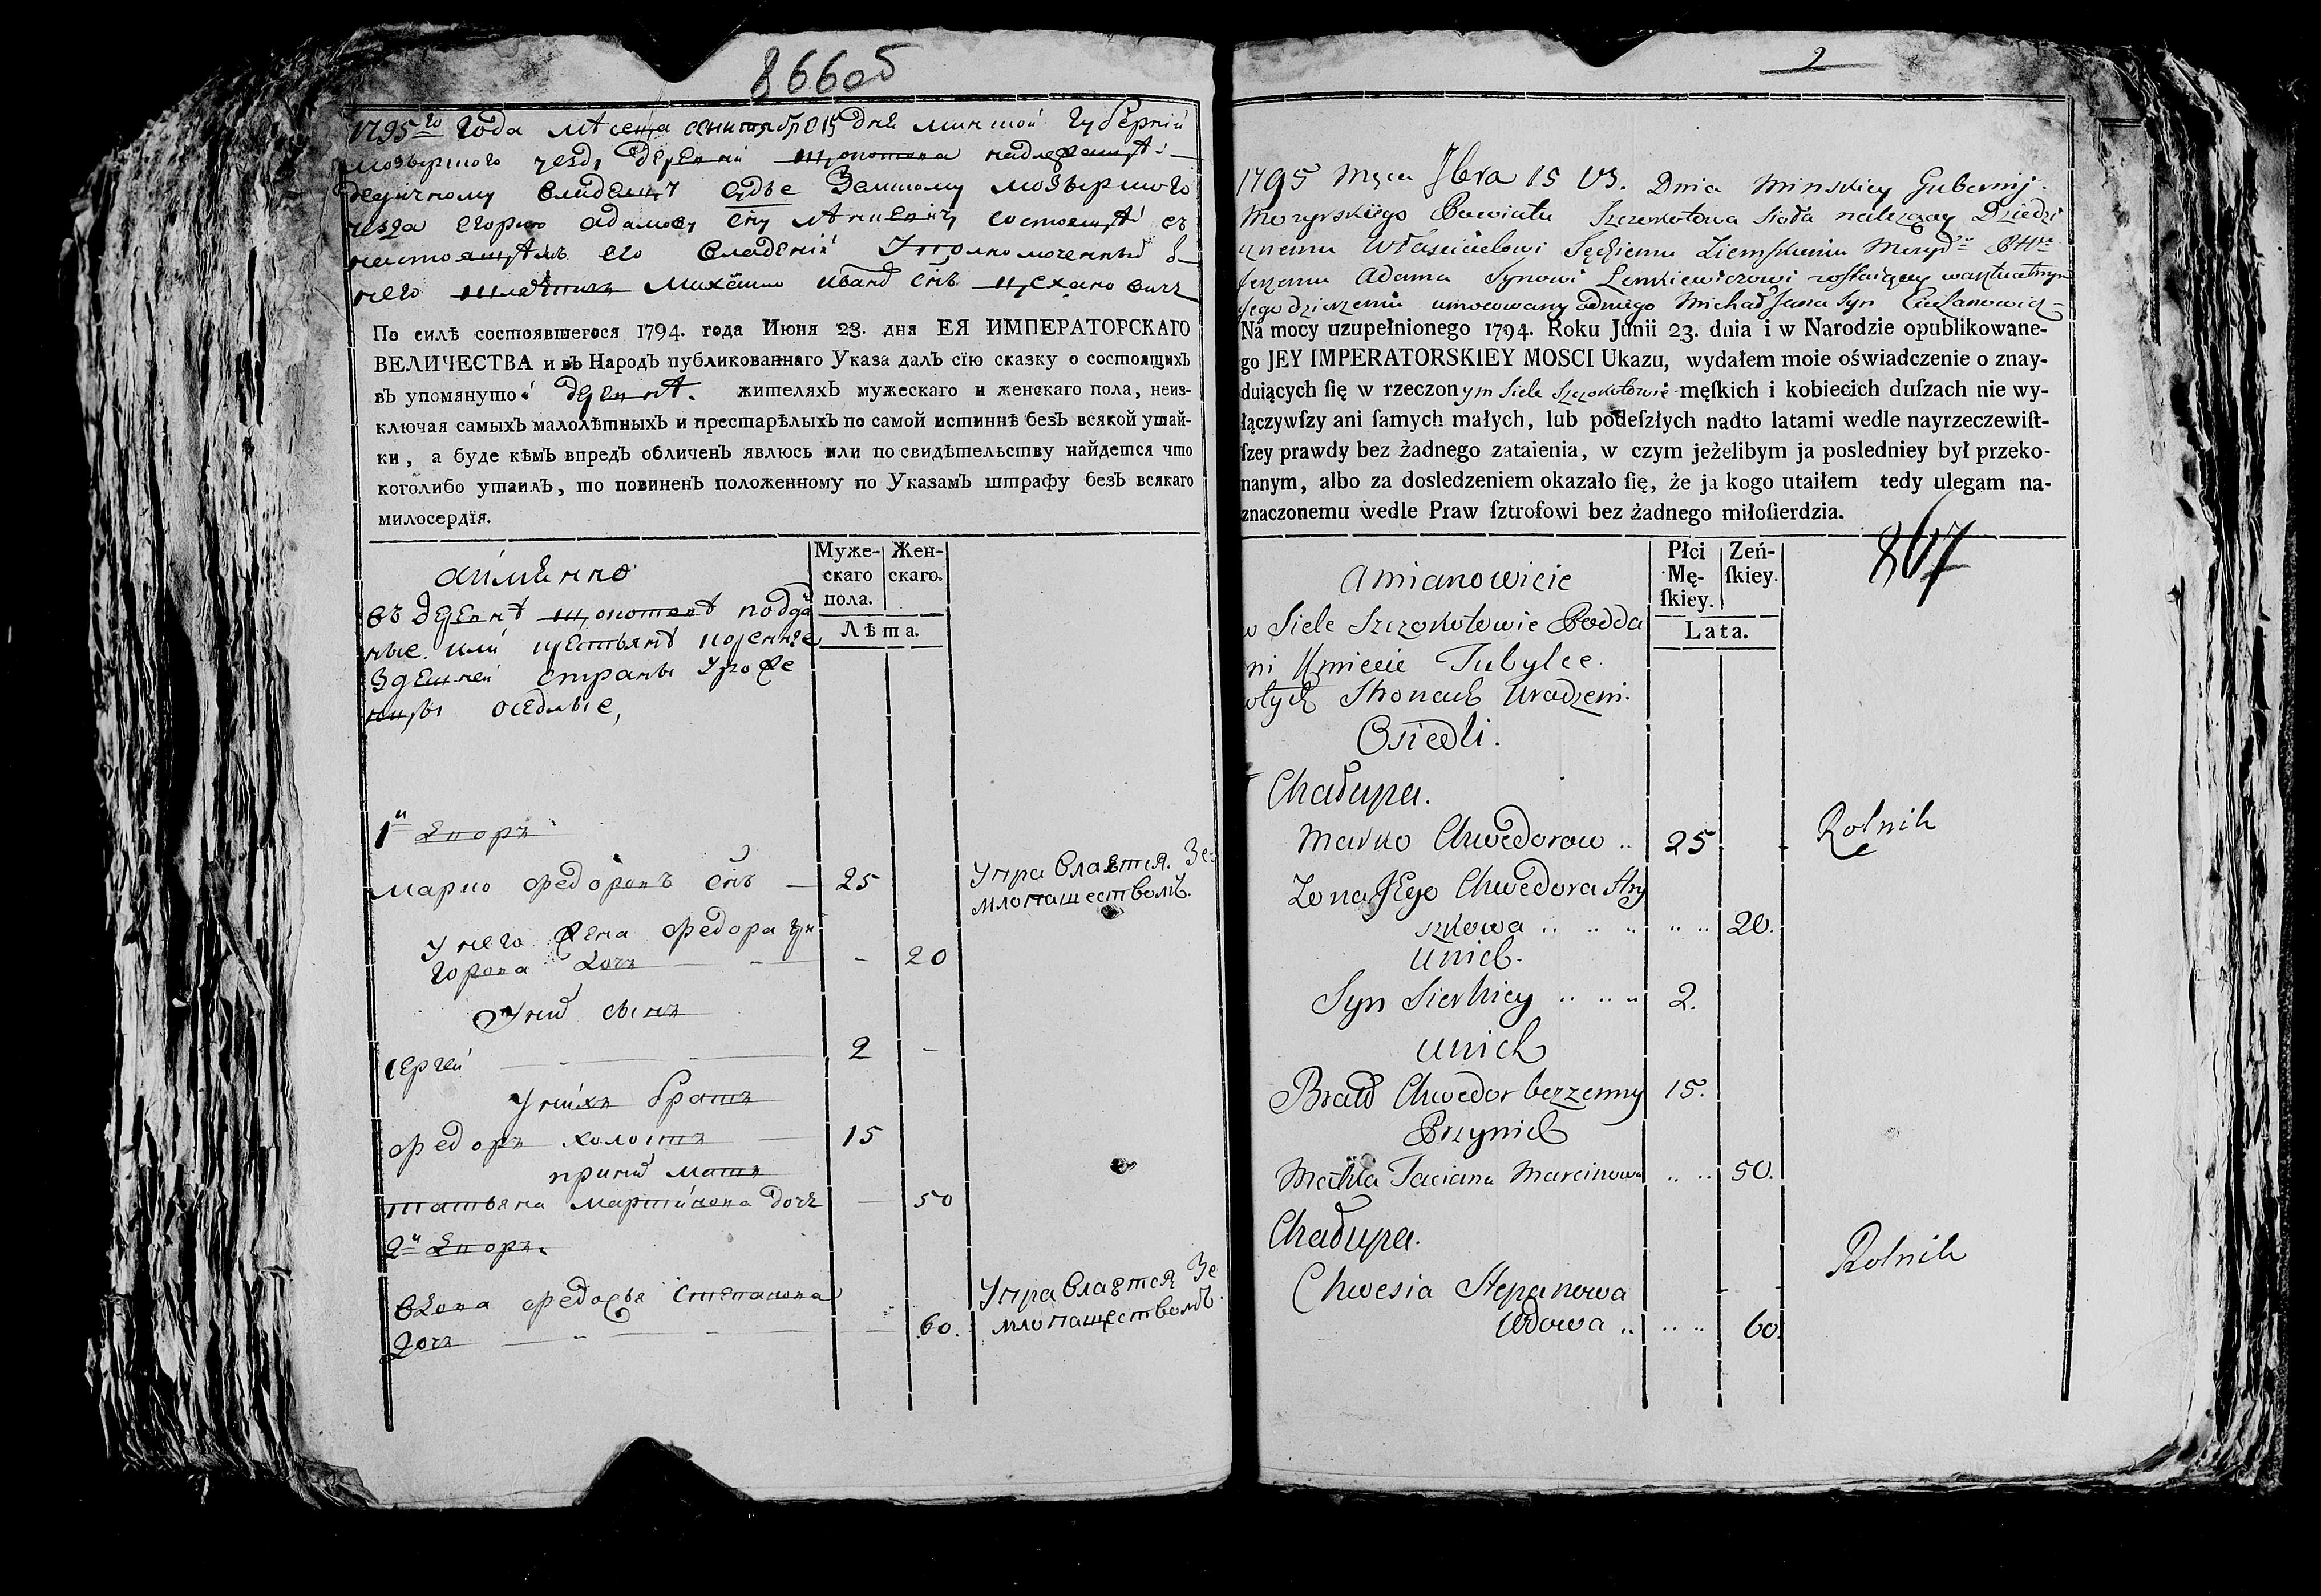 866об
1795го года мѣсеца сентебра 15 дня минской губерніи
мозырского уезду деревни надлежащѣй
судье земскому мозырского
уезда егорию адамову сну состоящѣй въ
настоящѣмъ его владеніи уполномоченный ѿ
него михайло иванъ снъ
По силѣ состоявшегося 1794. года Июня 23. дня ЕЯ ИМПЕРАТОРСКАГО
ВЕЛИЧЕСТВА и въ Народъ публикованнаго Указа далъ сїю сказку о состоящихъ
въ упомянутой деревнѣ. жителяхъ мужескаго и женскаго пола, неиз-
ключая самыхъ малолѣтныхъ и престарѣлыхъ по самой истиннѣ безъ всякой утай-
ки, а буде кѣмъ впредъ обличенъ явлюсь или по свидѣтельству найдется что
коголибо утаилъ, то повиненъ положенному по Указамъ штрафу безъ всякаго
милосердїя.
аименно
Муже-
скаго
пола.
Жен-
скаго.
Лѣта.
въ деревнѣ подда
ные или крестьянѣ коренные
здешней страны уроже
нцы оседлые,
1й дворъ
марко федоровъ снъ — 25
управлается зе
млопашествомъ.
у него жена федора
дочь — 20
у ний сынъ
сергей 2 -
у нихъ братъ
федоръ холостъ — 15
при ний мать
татьяна мартинова дочь — 50
2й дворъ
вдова федосья степанова
дочь 60.
управлается зе
млопашествомъ.
2
1795 Męca 7bra 15 V3. Dnia Minskiey Gubernij
Mozyrskiego Powiatu Szczekotowa Sioła należący Dziedzi
cznemu Właścicielowi Sędziemu Ziemskiemu
Adama Synowi Lenkiewiczowi
umocowany odniego Michał Jana Syn
Na mocy uzupełnionego 1794. Roku Junii 23. dnia i w Narodzie opublikowane-
go JEY IMPERATORSKIEY MOSCI Ukazu, wydałem moie oświadczenie o znay-
duiących ſię w rzeczonym Siele Szczokotowie męſkich i kobiecich duſzach nie wy-
łączywſzy ani ſamych małych, lub podeſzłych nadto latami wedle nayrzeczewiſt-
ſzey prawdy bez żadnego zataienia, w czym jeżelibym ja posledniey był przeko-
nanym, albo za dosledzeniem okazało ſię, że ja kogo utaiłem tedy ulegam na-
znaczonemu wedle Praw ſztrofowi bez żadnego miłoſierdzia.
867
Amianowicie
Płci
Mę-
ſkiey.
Zeń-
ſkiey.
Lata.
w Siele Szczokotowie Podda
ni Kmiecie Tubylce.
wtych Stronach Urodzeni.
Osiedli.
Chałupa.
Marko Chwedorow .. 25
Rolnik
Zona Jego Chwedora Hry
szkowa .. .. .. .. .. 20.
Unich.
Syn Sierhiey .. .. .. 2.
Unich
Brad Chwedor bezzenny 15.
Przynich
Matka Taciana Marcinowa .. .. 50.
Chałupa.
Chwesia Stepanowa
Rolnik
Wdowa .. .. .. 60.